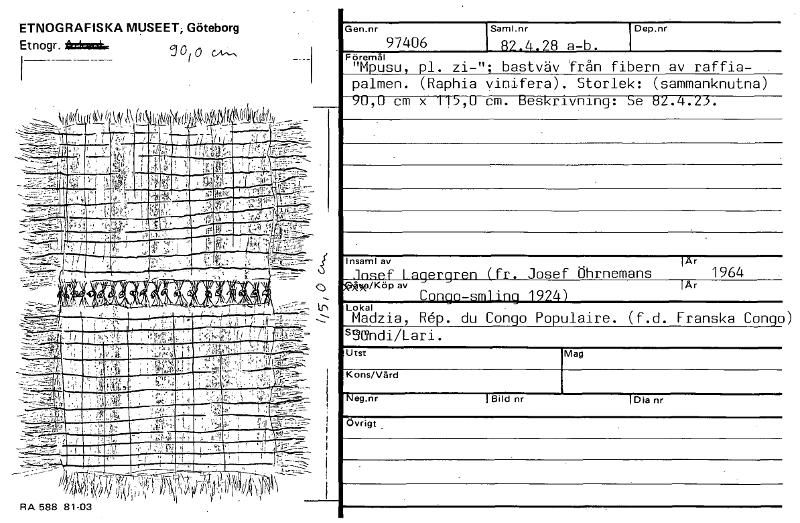 ETNOGRAFISKA MUSEET, Göteborg
Etnogr.
90,0 cm
115,0 cm
RA 588 81-03
Gen.nr Saml.nr Dep.nr
97406 82.4.28 a-b.
Föremål
"Mpusu, pl. zi-"; bastväv från fibern av raffia-
palmen. (Raphia vinifera). Storlek: (sammanknutna)
90,0 cm x 115,0 cm. Beskrivning: Se 82.4.23.
Insaml av År
Josef Lagergren (fr. Josef Öhrnemans 1964
Gåva/Köp av År
Congo-smling 1924)
Lokal
Madzia, Rép. du Congo Populaire. (f.d. Franska Congo)
Stam
Sundi/Lari.
Utst Mag
Kons/Vård
Neg.nr Bild nr Dia nr
Övrigt